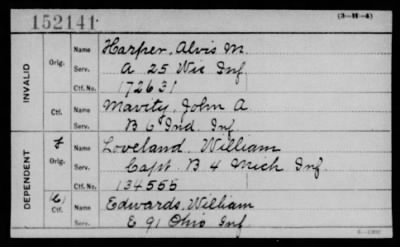 152141 (3-H-4)
INVALID
Orig. Name Harper, Alvis M.
Serv. A 25 Wis Inf
Ctf. No. 172631
Ctf. Name Mavity, John A
B 6 Ind. Inf
DEPENDENT
Orig. Name Loveland, William
Serv. Capt B 4 Mich Inf.
Ctf. No. 134555
Ctf. Name Edwards, William
E 91 Ohio Inf